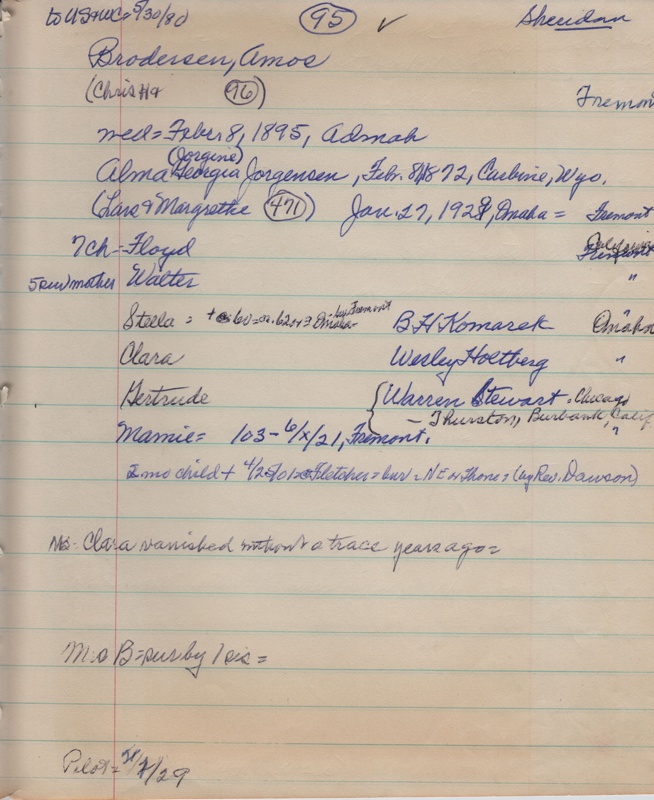 to US & WC = 5/30/80 (95) ✓ Sheridan
Brodersen, Amos
(Chris H & (96)) Fremon
med = Febr 8, 1895, Admah
(Jorgine)
Alma Georgia Jorgensen, Febr. 8, 1872, Carbine, Wyo.
(Lars & Margrethe (471)) Jan. 27, 1929, Omaha = Fremont
7 ch = Floyd Fremont
5 sur mother Walter "
Stella = + 60 = a. 62 yr = Omaha - bur Fremont B H Komarek Omaha
Clara Wesley Holtberg "
Gertrude { Warren Stewart, Chicago
- Thurston, Burbank, Calif.
Mamie = 103 - 6/x/21, Fremont. "
2 mo child + 4/25/01 = Fletcher = bur = NE of Thone = (by Rev. Dawson)
NB - Clara vanished without a trace years ago =
M o B = sur by 1 sis =
Pilot = /29